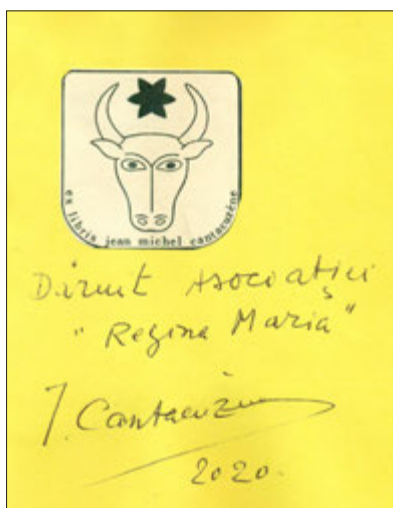 ex libris jean michel cantacuzène
Dăruit Asociației
"Regina Maria"
J. Cantacuzène
2020.